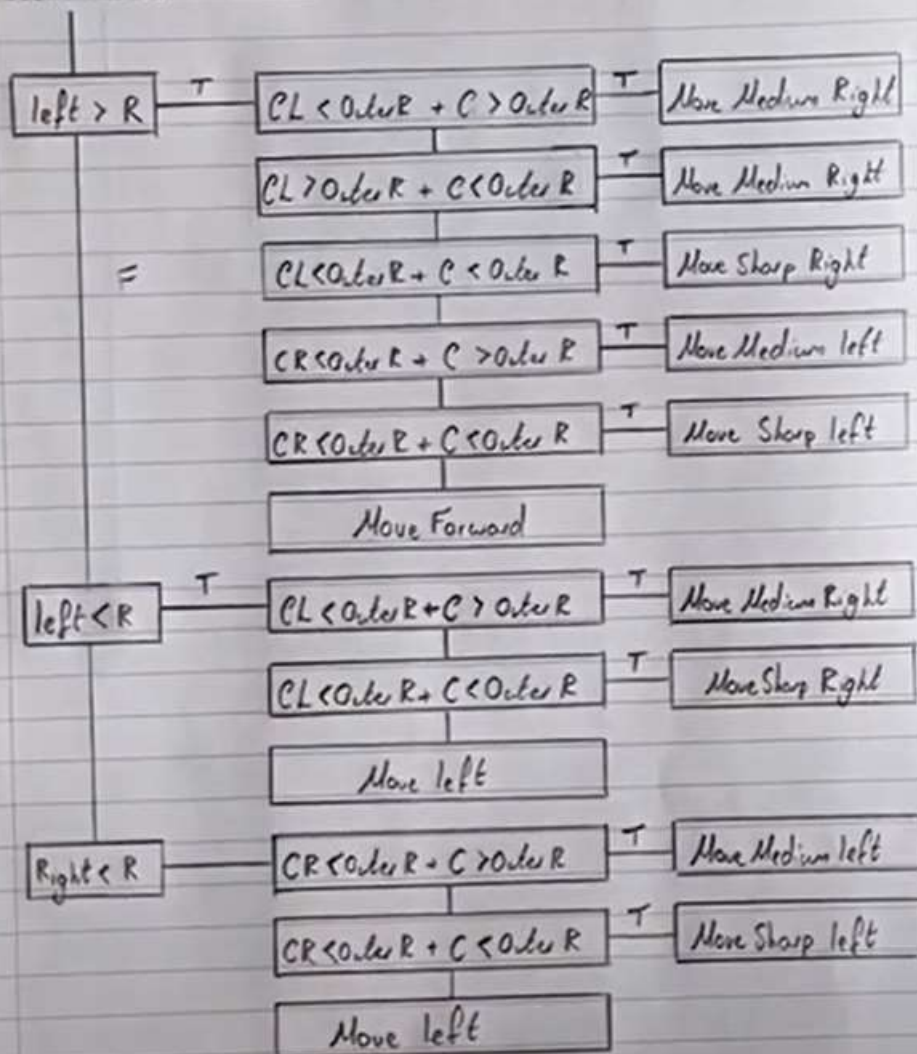 left > R T CL < Outer R + C > Outer R T Move Medium Right
CL > Outer R + C < Outer R T Move Medium Right
= CL < Outer R + C < Outer R T Move Sharp Right
CR < Outer R + C > Outer R T Move Medium left
CR < Outer R + C < Outer R T Move Sharp left
Move Forward
left < R T CL < Outer R + C > Outer R T Move Medium Right
CL < Outer R + C < Outer R T Move Sharp Right
Move left
Right < R CR < Outer R + C > Outer R T Move Medium left
CR < Outer R + C < Outer R T Move Sharp left
Move left